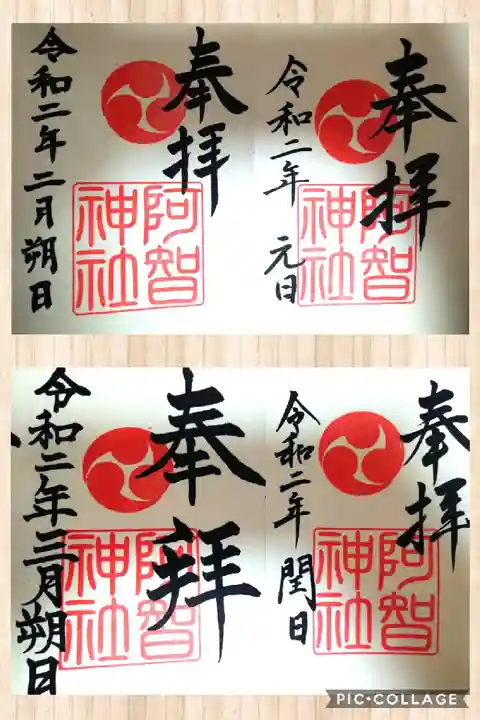 奉拝
阿智
神社
令和二年 元日
奉拝
阿智
神社
令和二年二月朔日
奉拝
阿智
神社
令和二年 閏日
奉拝
阿智
神社
令和二年三月朔日
PIC•COLLAGE